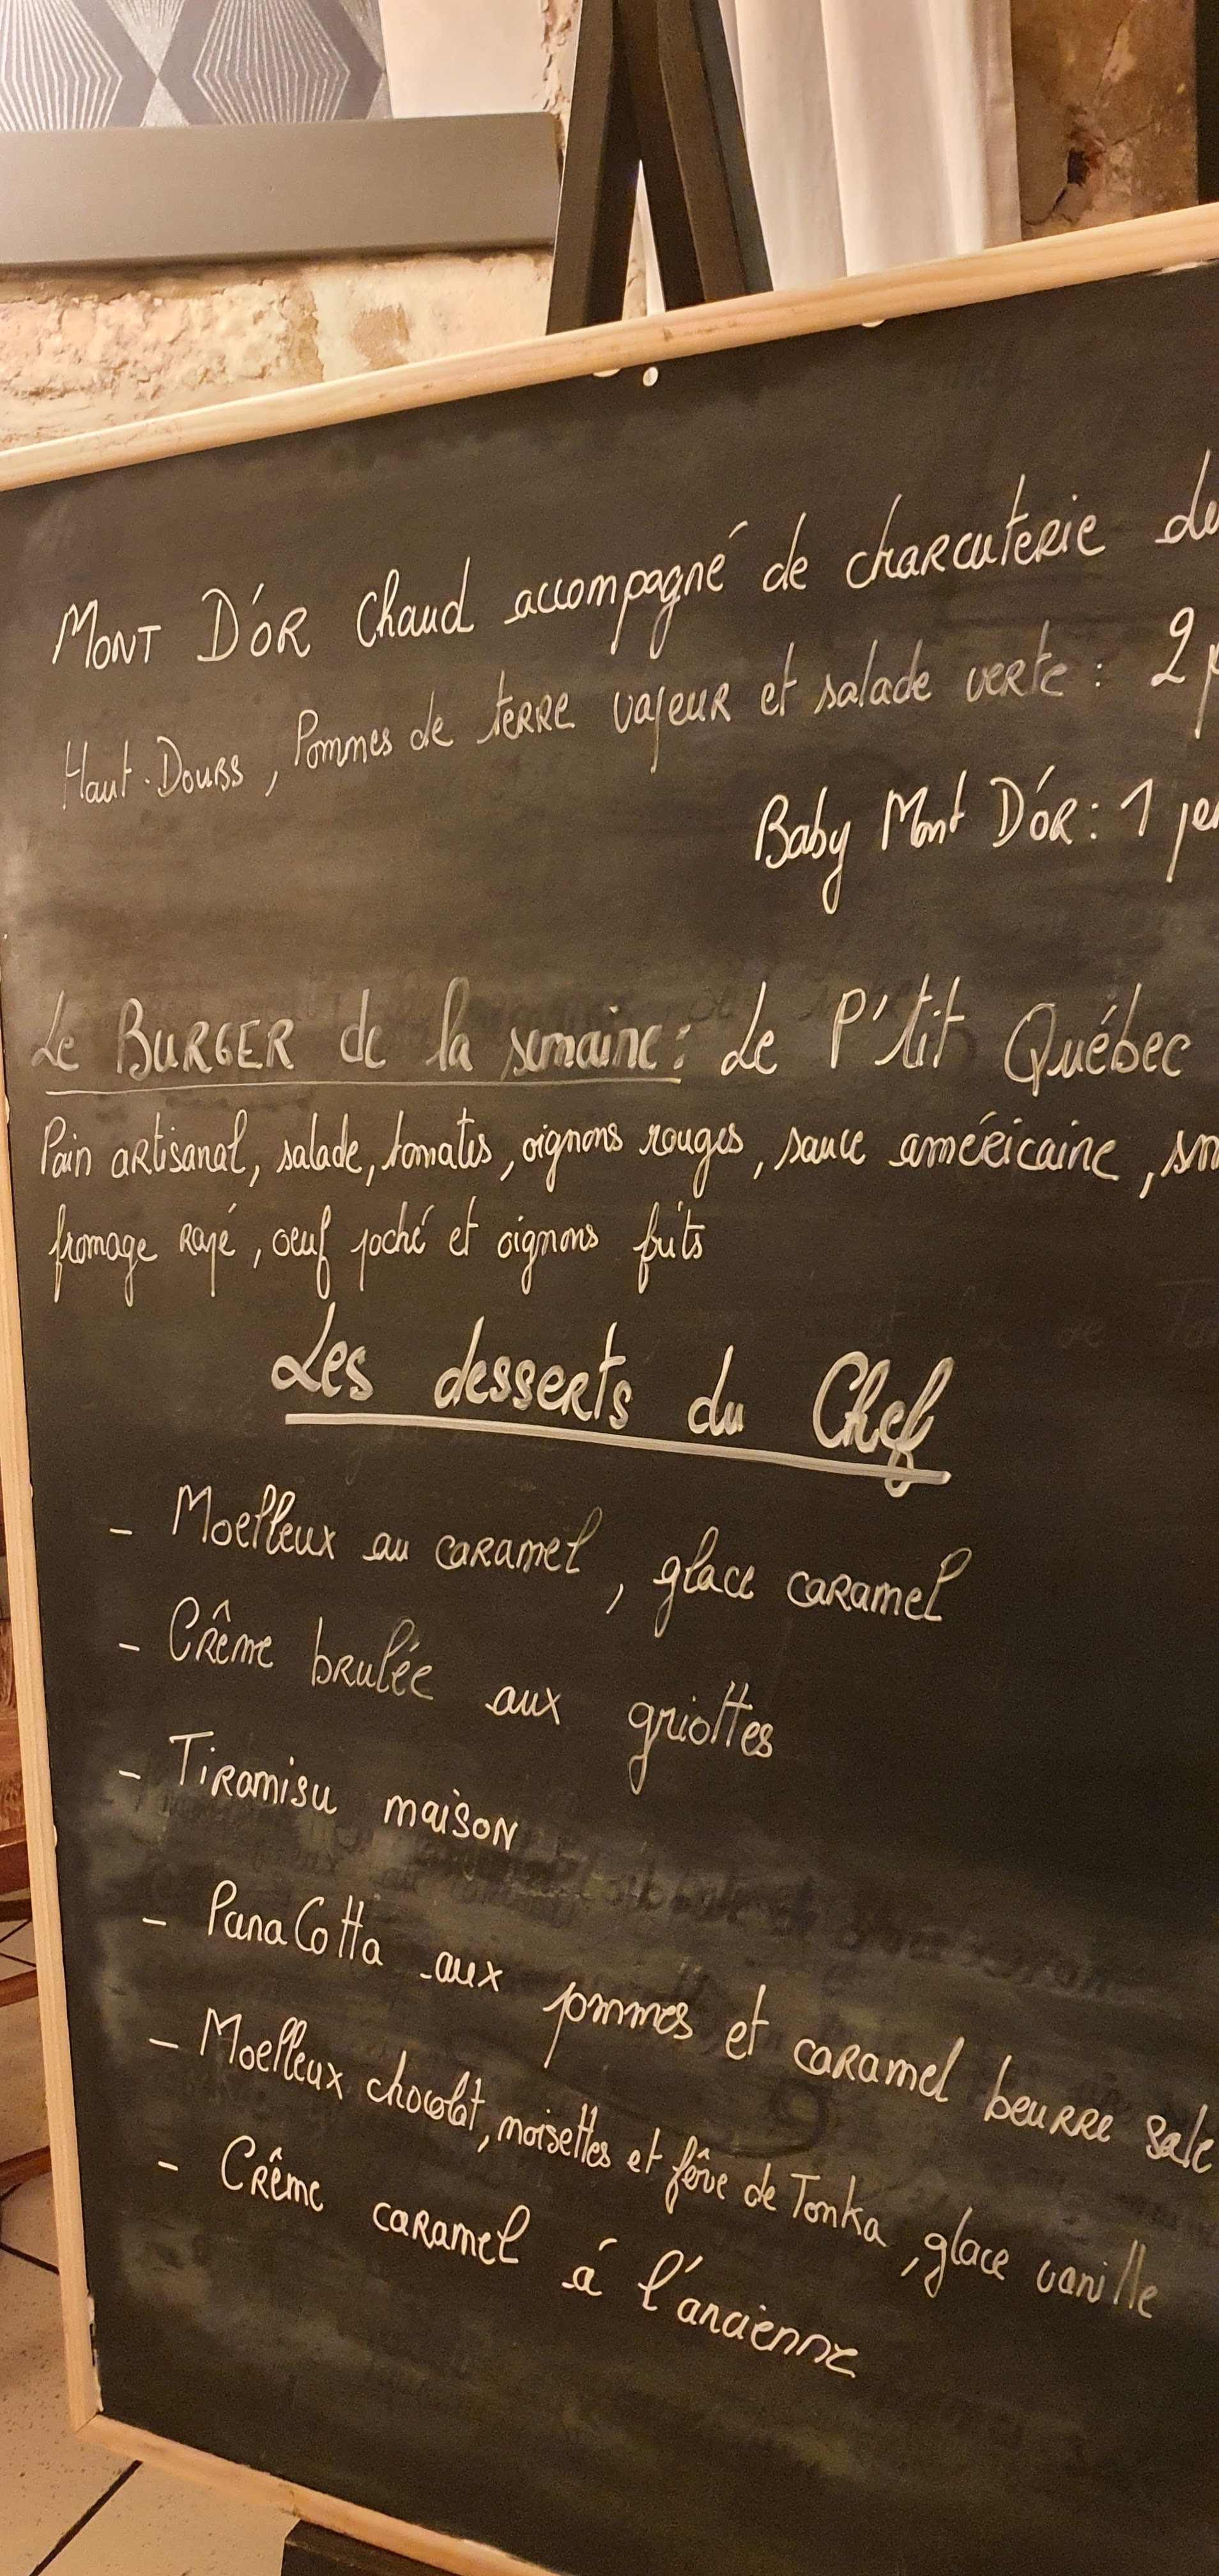 MONT D'OR Chaud accompagné de charcuterie du
Haut-Doubs, Pommes de terre vapeur et salade verte : 2 p
Baby Mont D'OR : 1 per
Le BURGER de la semaine : Le P'tit Québec
Pain artisanal, salade, tomates, oignons rouges, sauce américaine, sm
fromage rapé, oeuf poché et oignons frits
Les desserts du Chef
- Moelleux au caramel, glace caramel
- Crême brulée aux griottes
- Tiramisu maison
- PanaCotta aux pommes et caramel beurre salé
- Moelleux chocolat, noisettes et fêve de Tonka, glace vanille
- Crême caramel á l'ancienne